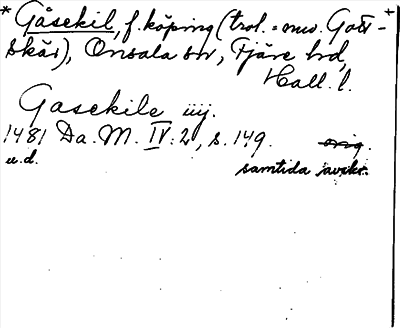 * Gåsekil, f. köping (trol. = nuv. Gott- +
skär), Onsala sn, Fjäre hd,
Hall. l.
Gasekile iiij.
1481 Da. M. IV: 2, s. 149. orig.
u.d. samtida avskr.